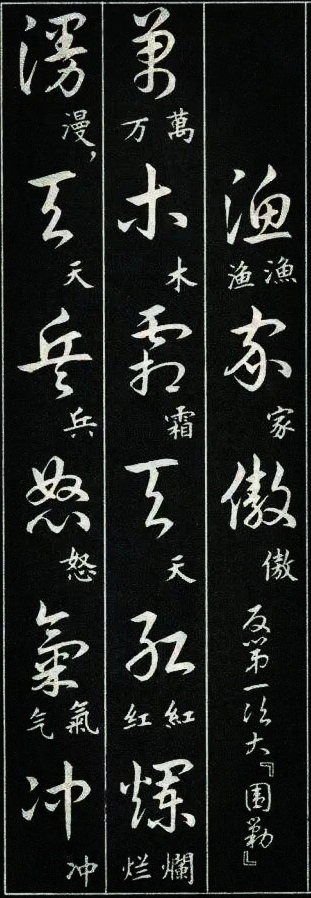 漁家傲
漁渔家傲
反第一次大『圍勦』
萬木霜天紅爛
萬万木霜天紅红爛烂
漫天兵怒氣冲
漫，天兵怒氣气冲